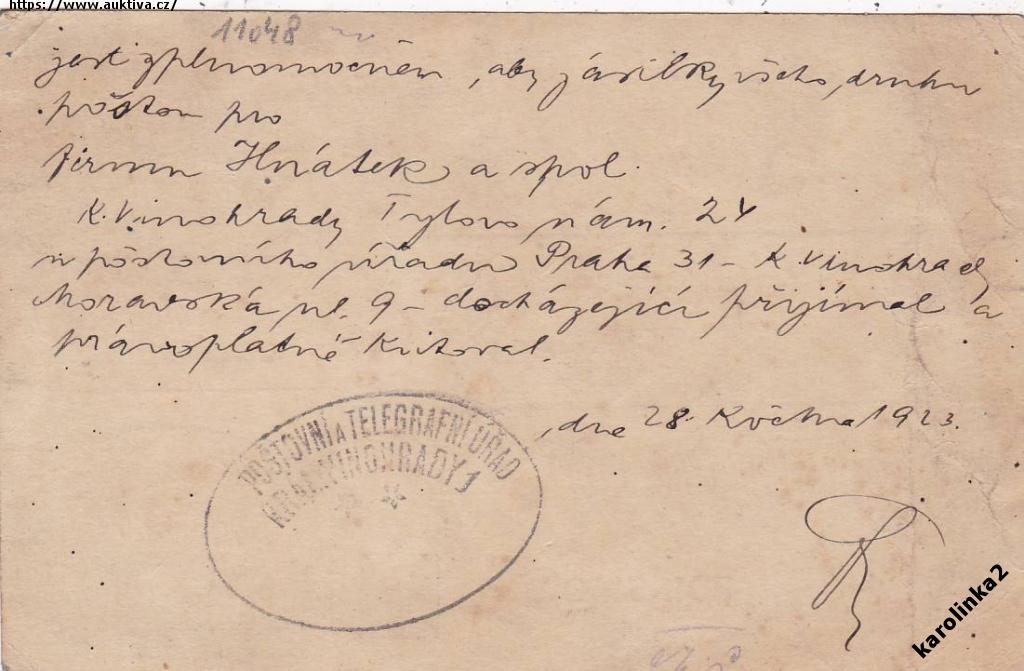 https://www.auktiva.cz/
11048
jest zplnomocněn, aby zásilky všeho druhu
poštou pro
firmu Hnátek a spol.
K. Vinohrady Tylovo nám. 24
u poštovního úřadu Praha 31 – K. Vinohrady
Moravská ul. 9 – docházející přijímal a
právoplatně kvitoval.
dne 28. Května 1923.
POŠTOVNÍ A TELEGRAFNÍ ÚŘAD
KRÁL. VINOHRADY 1
karolinka2